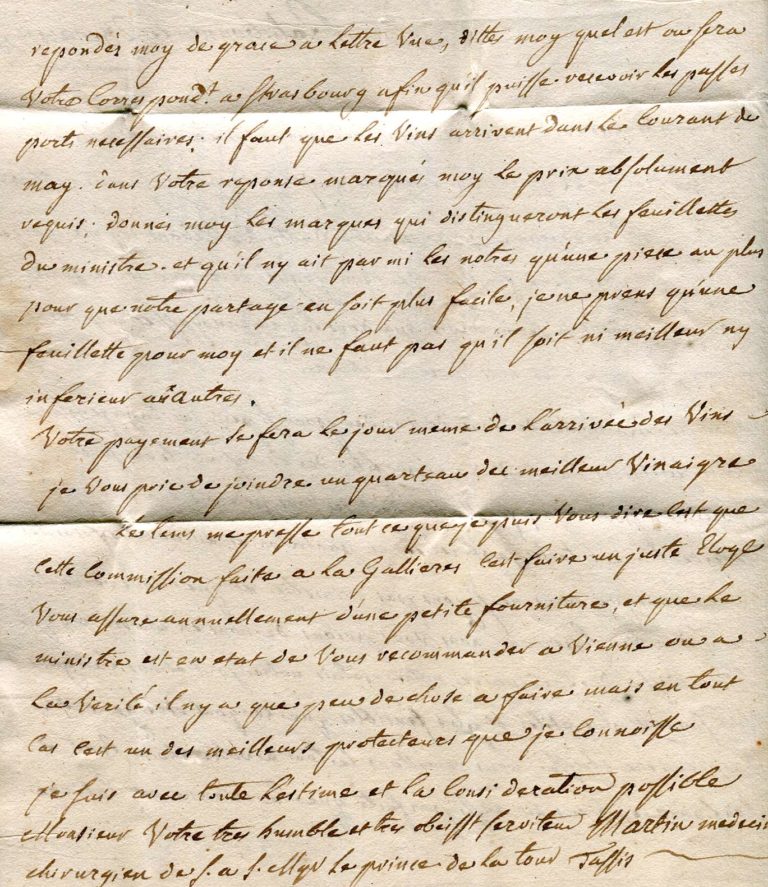 repondés moy de grace a lettre vue, dittes moy quel est ou sera
votre Correspond.t a Strasbourg afin qu'il puisse recevoir les passes
ports necessaires; il faut que les vins arrivent dans le Courant de
may. dans votre reponse marqués moy le prix absolument
requis; donnés moy les marques qui distingueront les feuillettes
du ministre. et qu'il ny ait parmi les notres qu'une piece au plus
pour que notre partage en soit plus facile, je ne prens qu'une
feuillette pour moy et il ne faut pas qu'il soit ni meilleur ny
inferieur aux autres.
Votre payement se fera le jour meme de l'arrivée des Vins
je vous prie de joindre un quarteau de meilleur Vinaigre
Le tems me presse tout ce que je puis vous dire c'est que
cette Commission faite a la Gallieres c'est faire un juste Eloge
Vous assure annuellement d'une petite fourniture, et que le
ministre est en etat de vous recommander a Vienne ou a
la verité il ny a que peu de chose a faire mais en tout
Cas c'est un des meilleurs protecteurs que je Connoisse
je suis avec toute l'estime et la Consideration possible
Monsieur Votre tres humble et tres obeisst serviteur Martin medecin
chirurgien de s. a s. Mgr le prince de la tour Tassis